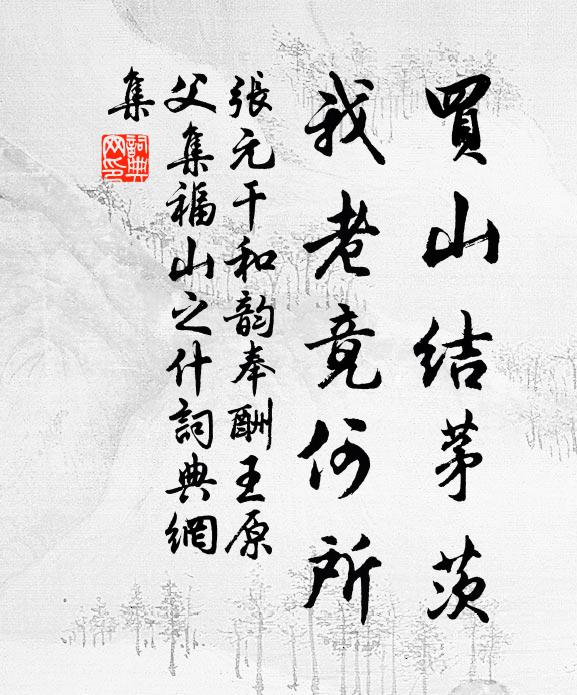 買山結茅茨
我老竟何所
張元干和韵奉酬王原
父集福山之什詞典網
集
詞典網印